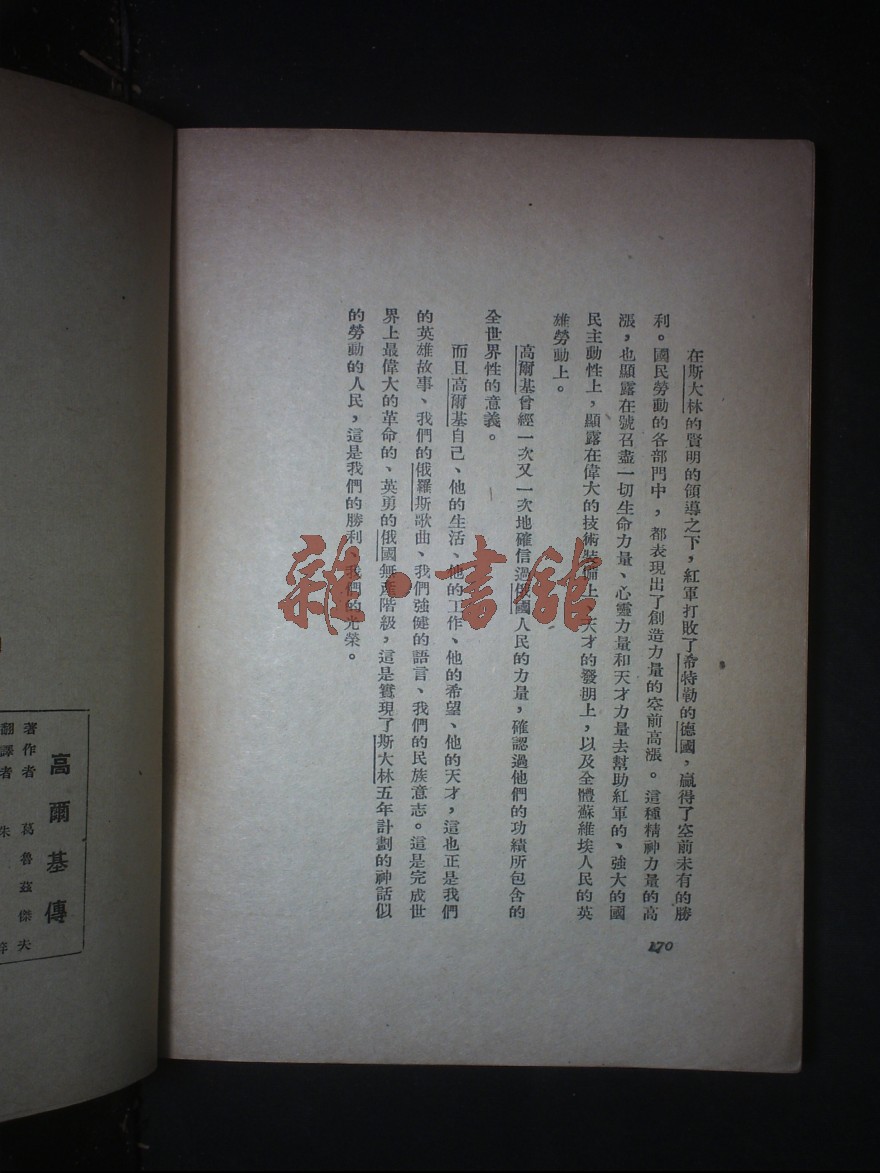 在斯大林的賢明的領導之下，紅軍打敗了希特勒的德國，贏得了空前未有的勝
利。國民勞動的各部門中，都表現出了創造力量的空前高漲。這種精神力量的高
漲，也顯露在號召盡一切生命力量、心靈力量和天才力量去幫助紅軍的、強大的國
民主動性上，顯露在偉大的技術裝備上，天才的發明上，以及全體蘇維埃人民的英
雄勞動上。
高爾基曾經一次又一次地確信過俄國人民的力量，確認過他們的功績所包含的
全世界性的意義。
而且高爾基自己、他的生活、他的工作、他的希望、他的天才，這也正是我們
的英雄故事、我們的俄羅斯歌曲、我們強健的語言、我們的民族意志。這是完成世
界上最偉大的革命的、英勇的俄國無產階級，這是實現了斯大林五年計劃的神話似
的勞動的人民，這是我們的勝利、我們的光榮。
170
雜·書舘
高爾基傳
著作者 葛魯茲傑夫
翻譯者 朱